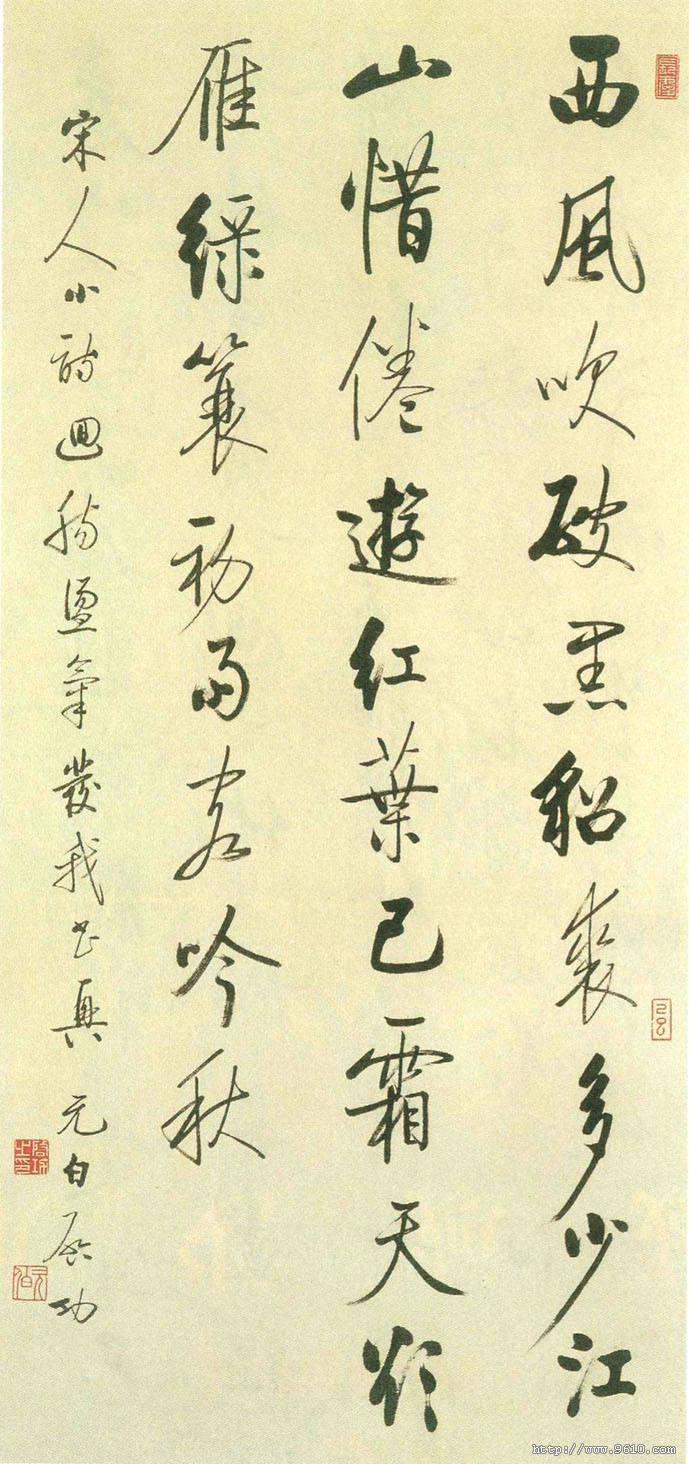 西風吹破黑貂裘多少江
山惜倦遊紅葉已霜天欲
雁綠簑初雨客吟秋
宋人小詩迴腸盪氣發我書興 元白啟功
http://www.9610.com